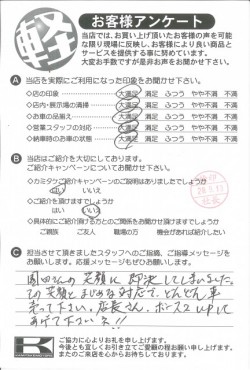 軽
お客様アンケート
当店では、お買い上げ頂いたお客様の声を可能
な限り現場に反映し、お客様により良い商品と
サービスを提供する事に努めています。
大変お手数ですが是非お声をお聞かせ下さい。
A 当店を実際にご利用になった印象をお聞かせ下さい。
○店の印象 大満足 満足 ふつう やや不満 不満
○店内・展示場の清掃 大満足 満足 ふつう やや不満 不満
○お車の品揃え 大満足 満足 ふつう やや不満 不満
○営業スタッフの対応 大満足 満足 ふつう やや不満 不満
○納車時のお車の状態 大満足 満足 ふつう やや不満 不満
B 当店はご紹介を大切にしております。
ご紹介キャンペーンについてお聞かせ下さい。
○カミタケご紹介キャンペーンのご説明はありましたでしょうか
はい いいえ
○ご紹介を頂けますでしょうか
はい いいえ
○具体的にご紹介頂ける方とのご関係をお聞かせ頂けますでしょうか
ご親族 ご友人 職場の方 機会があれば紹介したい
C 担当させて頂きましたスタッフへのご指摘、ご指導メッセージを
お願いします。応援メッセージもぜひお願いします。
岡田さんの笑顔に即決してしまいました。
この笑顔とまじめな対応で、どんどん車
売って下さい。店長さん、ボーナスUPして
あげて下さいネ!!
K
ご協力に心よりお礼を申し上げます。
今後とも宜しくお引き立てご愛顧の程お願い申し上げます。
またのご来店を心からお待ちしております。